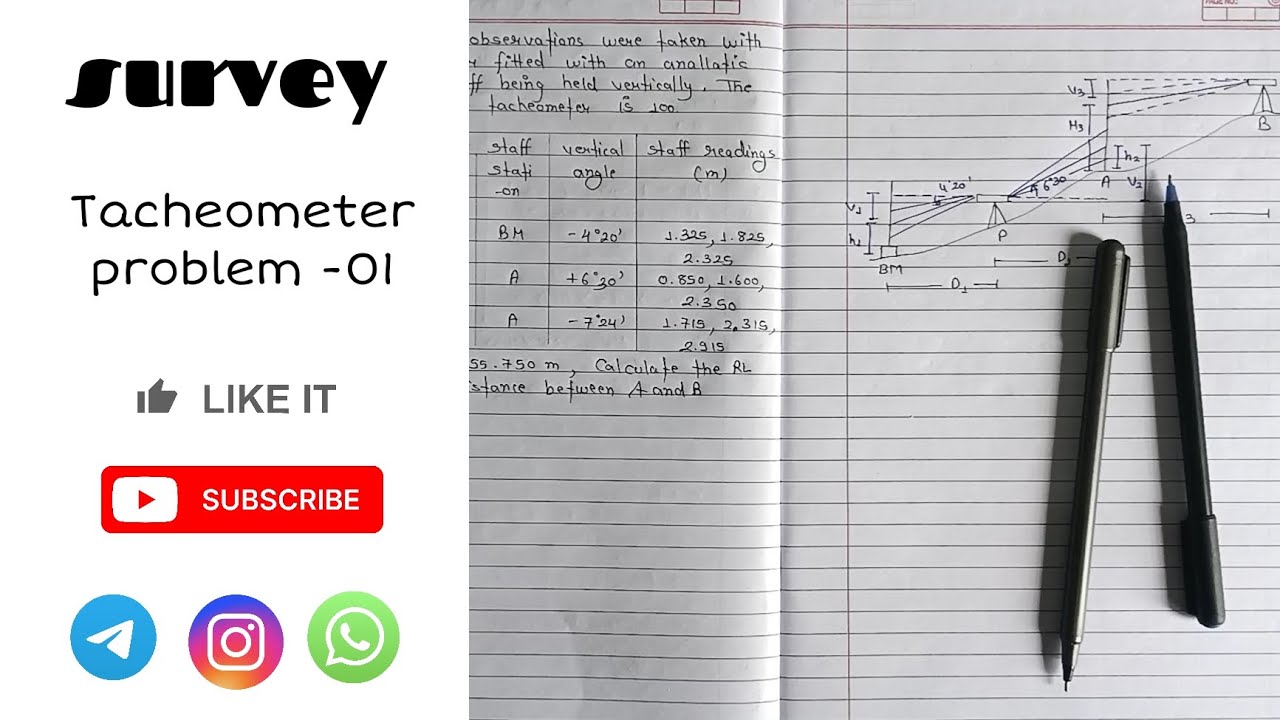 survey
Tacheometer
problem -01
LIKE IT
SUBSCRIBE
observations were taken with
fitted with an anallatic
being held vertically. The
tacheometer is 100.
staff vertical staff readings
stati angle (m)
-on
BM -4°20' 1.325, 1.825,
2.325
A +6°30' 0.850, 1.600,
2.350
A -7°24' 1.715, 2.315,
2.915
55.750 m, Calculate the RL
between A and B
PAGE NO.:
V3
H3
B
h2
4°20'
6°30
A
V2
V1
P
3
h1
BM
D1